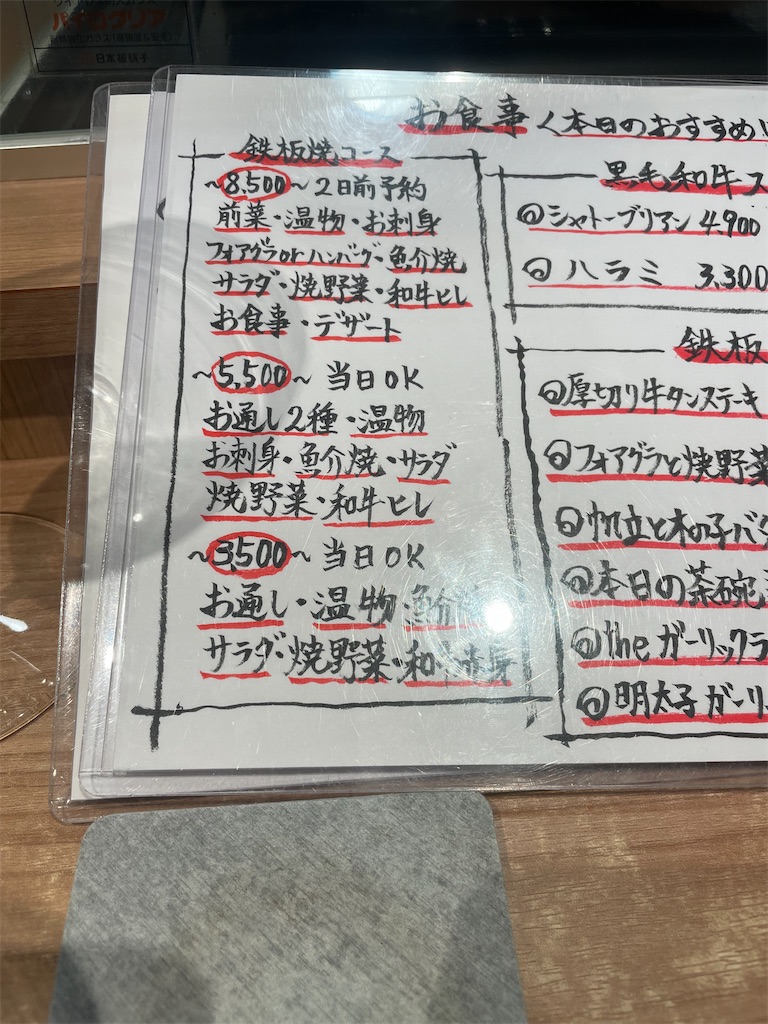 パイロクリア
日本板硝子
お食事 〈本日のおすすめ
鉄板焼コース
~8,500~ 2日前予約
前菜・温物・お刺身
フォアグラorハンバーグ・魚介焼
サラダ・焼野菜・和牛ヒレ
お食事・デザート
~5,500~ 当日OK
お通し2種・温物
お刺身・魚介焼・サラダ
焼野菜・和牛ヒレ
~3,500~ 当日OK
お通し・温物・魚介
サラダ・焼野菜・和牛赤身
黒毛和牛ス
シャトーブリアン 4,900
ハラミ 3,300
鉄板
厚切り牛タンステーキ
フォアグラと焼野菜
帆立と木の子バタ
本日の茶碗
the ガーリックラ
明太子ガーリ